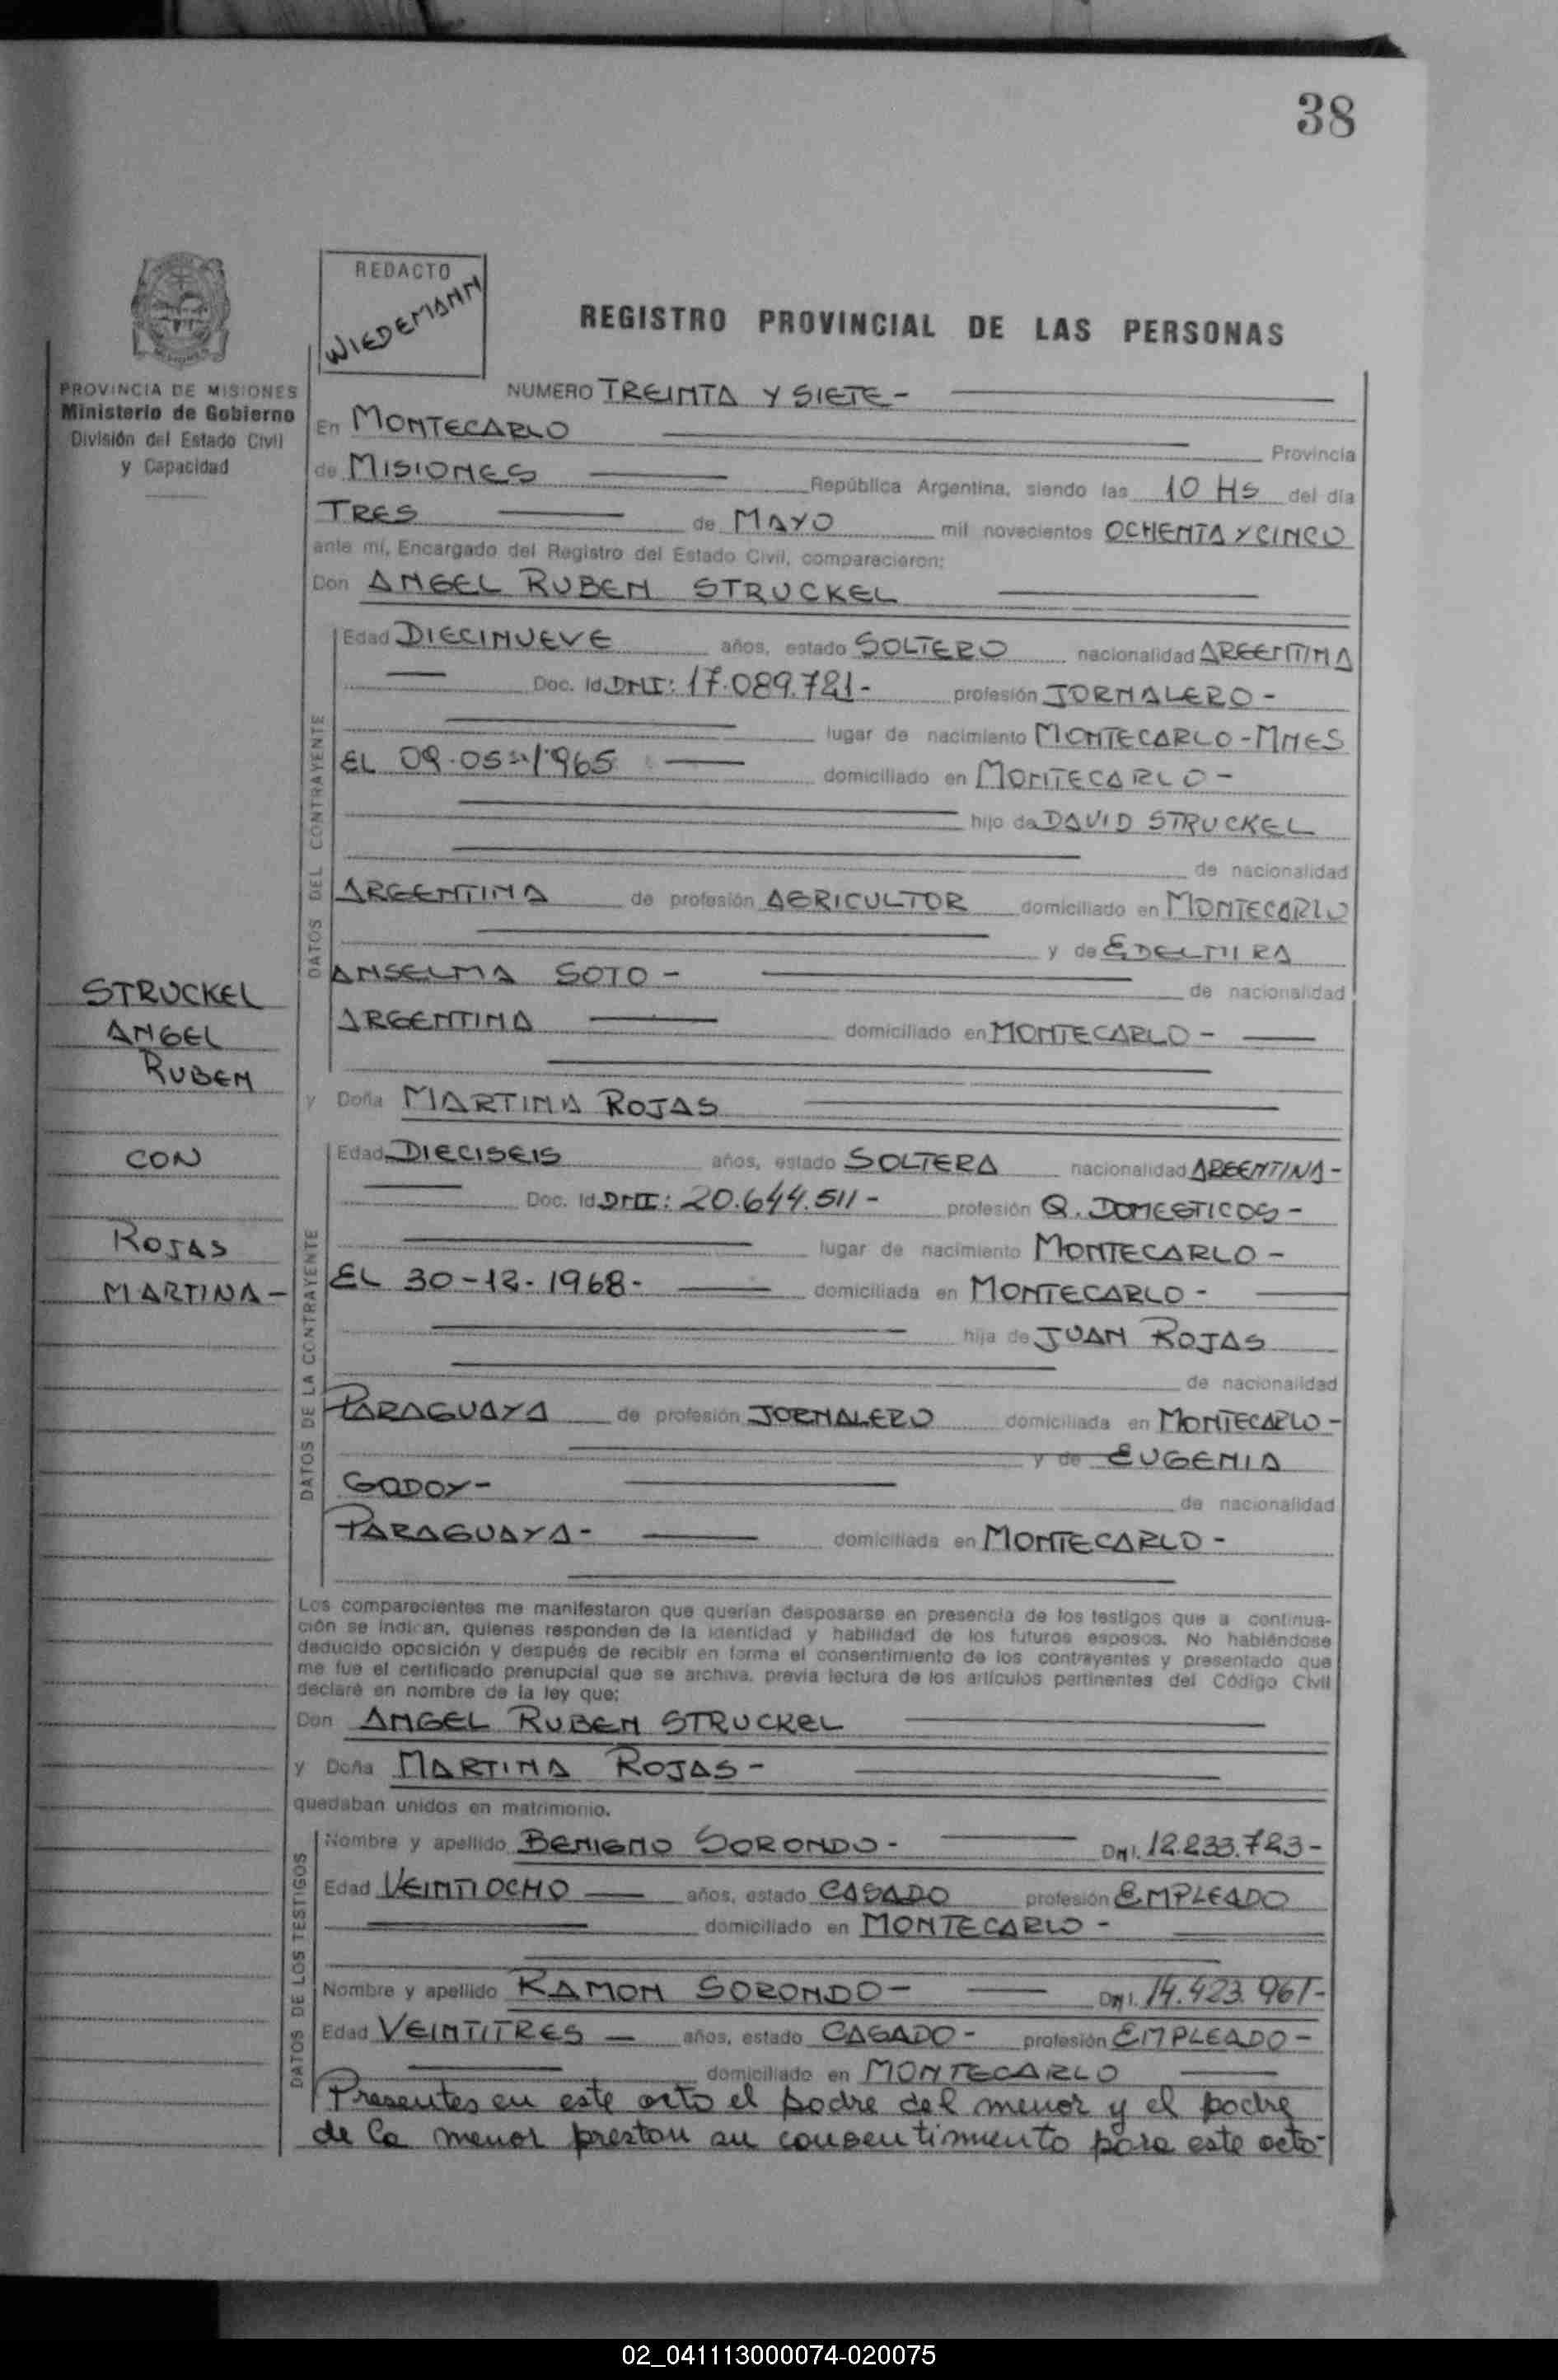 38
REDACTO
WIEDEMANN
REGISTRO PROVINCIAL DE LAS PERSONAS
PROVINCIA DE MISIONES
Ministerio de Gobierno
División del Estado Civil
y Capacidad
NUMERO TREINTA Y SIETE-
En MONTECARLO
Provincia
de MISIONES República Argentina, siendo las 10 HS del día
TRES de MAYO mil novecientos OCHENTA Y CINCO
ante mí, Encargado del Registro del Estado Civil, comparecieron:
Don ANGEL RUBEN STRUCKEL
DATOS DEL CONTRAYENTE
Edad DIECINUEVE años, estado SOLTERO nacionalidad ARGENTINA
Doc. Id. DNI: 17.089.721- profesión JORNALERO-
lugar de nacimiento MONTECARLO-MNES
EL 09-05-1965 domiciliado en MONTECARLO-
hijo de DAVID STRUCKEL
de nacionalidad
ARGENTINA de profesión AGRICULTOR domiciliado en MONTECARLO
y de EDELMIRA
ANSELMA SOTO- de nacionalidad
ARGENTINA domiciliado en MONTECARLO-
STRUCKEL
ANGEL
RUBEN
CON
ROJAS
MARTINA-
y Doña MARTINA ROJAS
DATOS DE LA CONTRAYENTE
Edad DIECISEIS años, estado SOLTERA nacionalidad ARGENTINA-
Doc. Id. DNI: 20.644.511- profesión Q. DOMESTICOS-
lugar de nacimiento MONTECARLO-
EL 30-12-1968- domiciliada en MONTECARLO-
hija de JUAN ROJAS
de nacionalidad
PARAGUAYA de profesión JORNALERO domiciliada en MONTECARLO-
y de EUGENIA
GODOY- de nacionalidad
PARAGUAYA- domiciliada en MONTECARLO-
Los comparecientes me manifestaron que querían desposarse en presencia de los testigos que a continua-
ción se indican, quienes responden de la identidad y habilidad de los futuros esposos. No habiéndose
deducido oposición y después de recibir en forma el consentimiento de los contrayentes y presentado que
me fue el certificado prenupcial que se archiva, previa lectura de los artículos pertinentes del Código Civil
declaré en nombre de la ley que:
Don ANGEL RUBEN STRUCKEL
y Doña MARTINA ROJAS-
quedaban unidos en matrimonio.
DATOS DE LOS TESTIGOS
Nombre y apellido BENIGNO SORONDO- DNI. 12.233.723-
Edad VEINTIOCHO años, estado CASADO profesión EMPLEADO
domiciliado en MONTECARLO-
Nombre y apellido RAMON SORONDO- DNI. 14.423.961-
Edad VEINTITRES años, estado CASADO- profesión EMPLEADO-
domiciliado en MONTECARLO
Presentes en este acto el padre del menor y el padre
de la menor prestan su consentimiento para este acto-
02_041113000074-020075